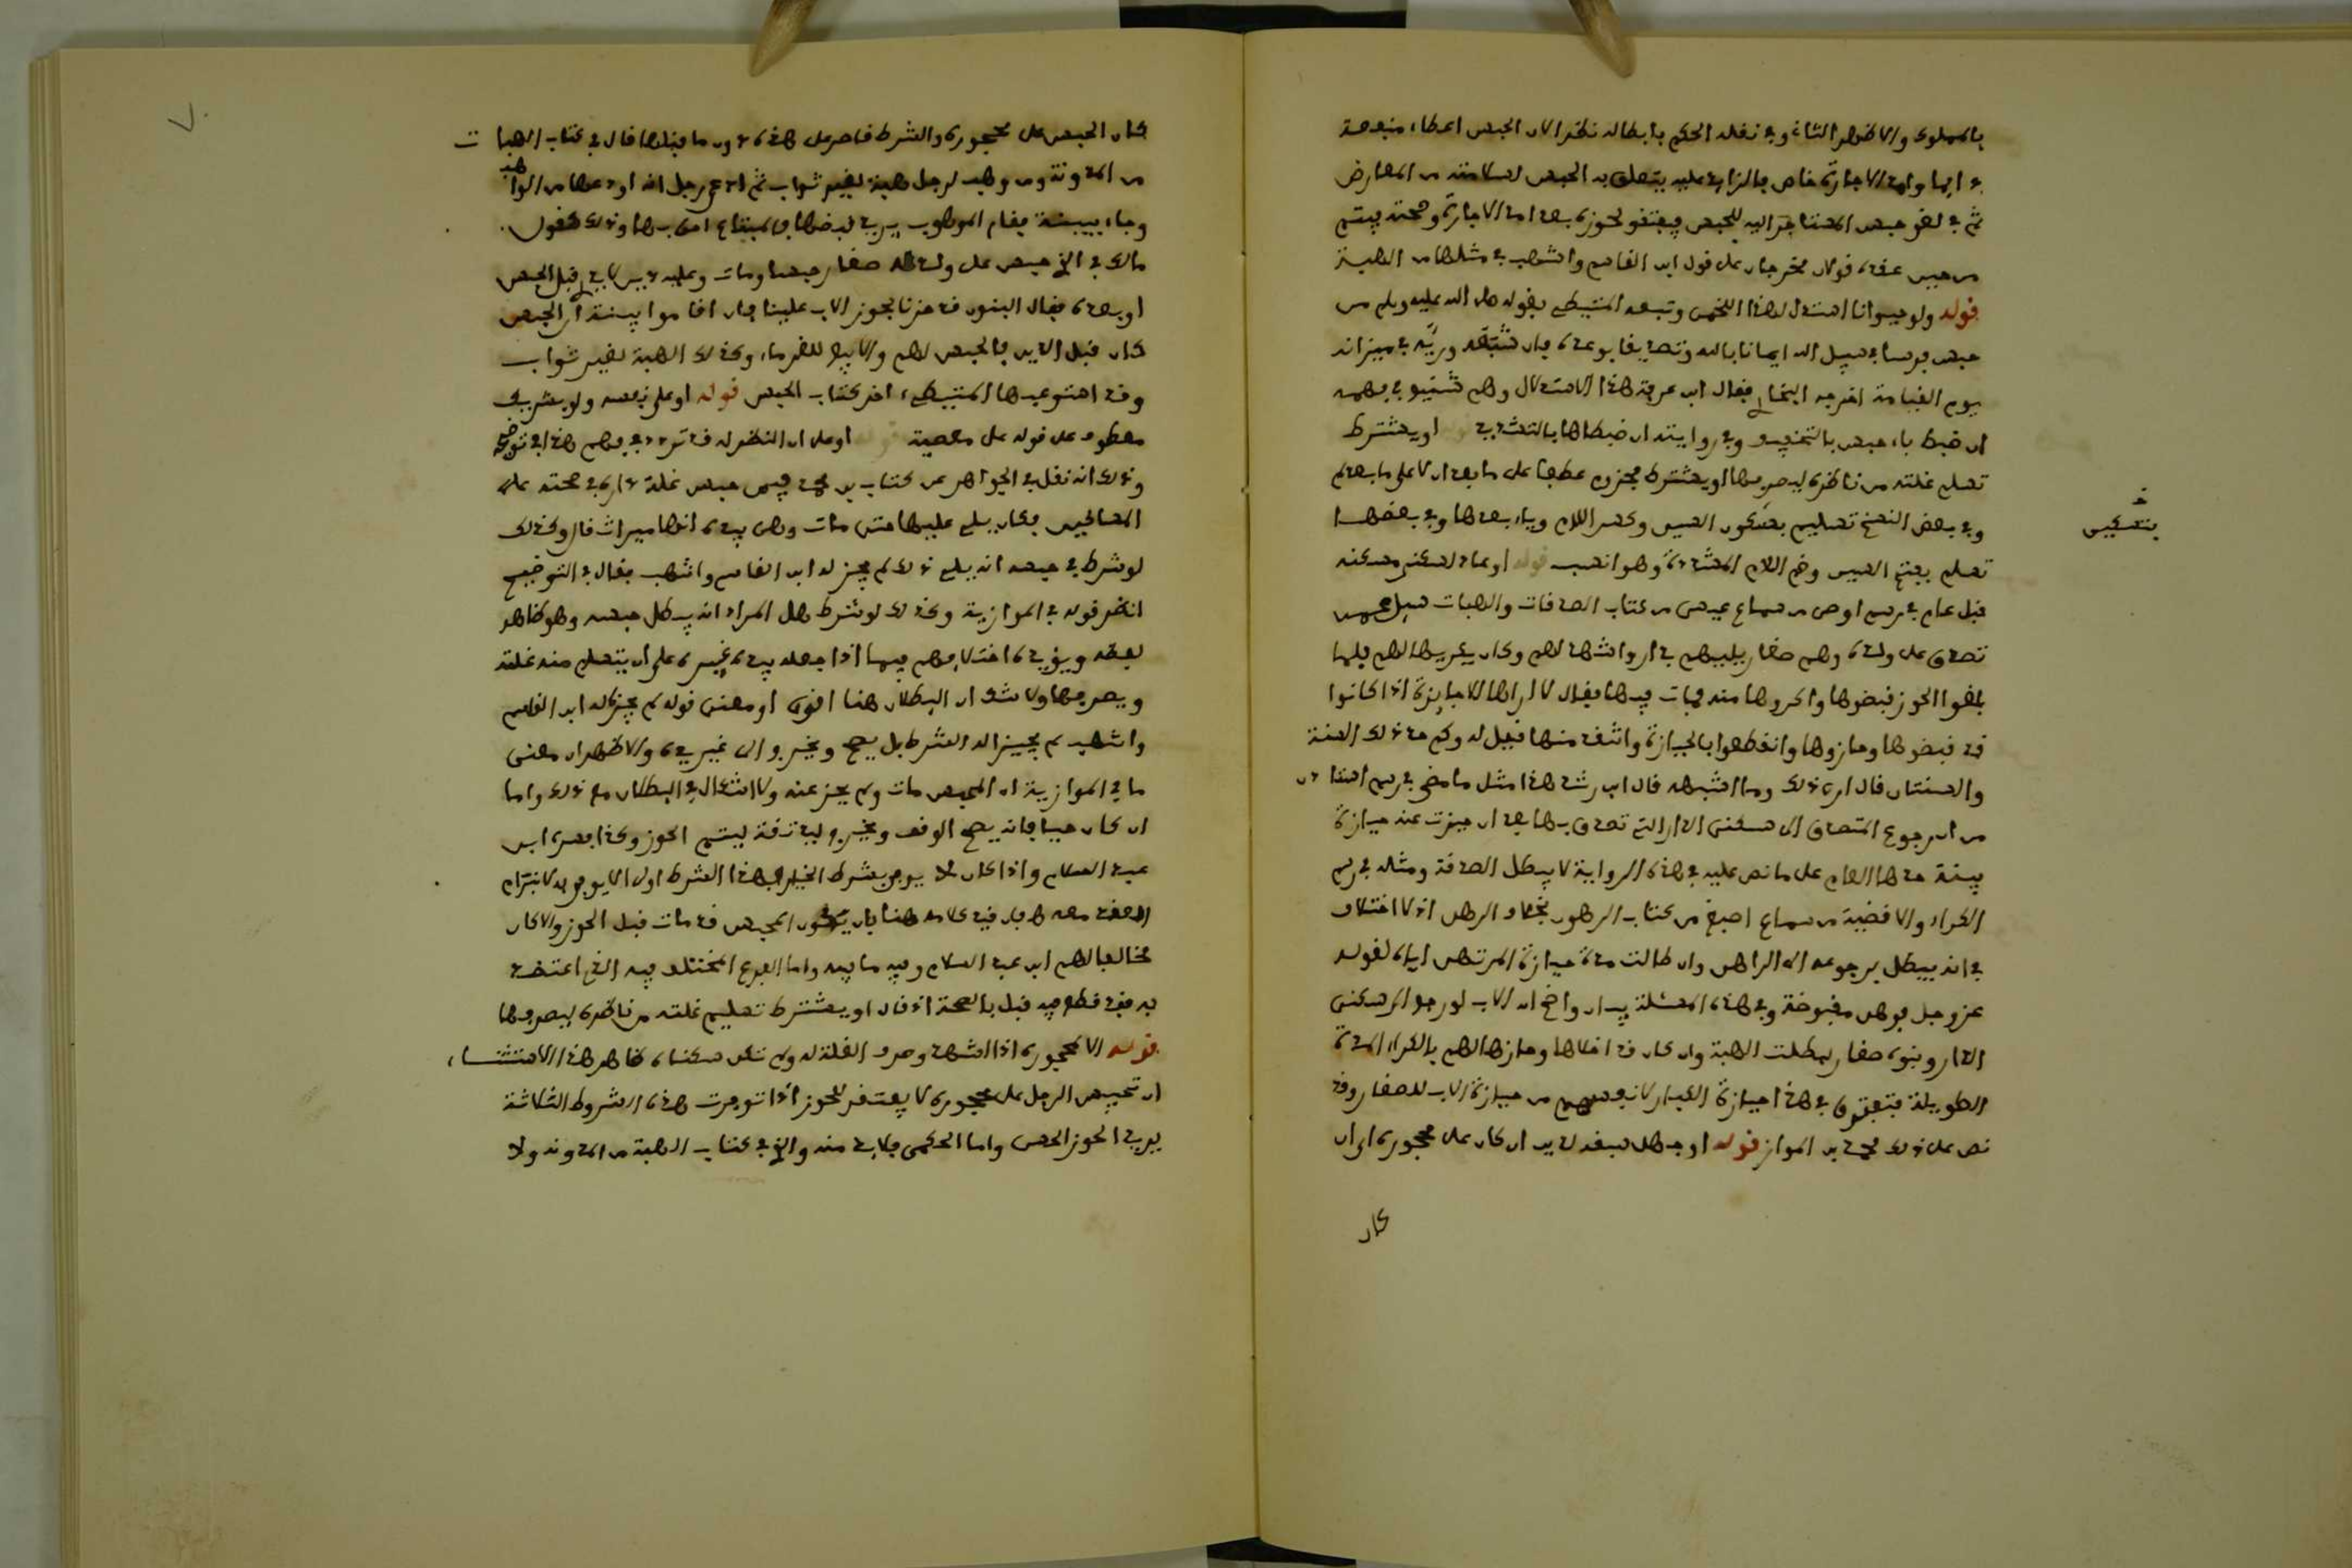 بالمملوك والاظهر الثاني وفي نفله الحكم بابطاله نظر الان الحبس اعطاء منفعة
ثم في لغو حبس المستاجر اليه للحبس فيفتقر لحوزه بعد امد الاجارة وصحته فيتم
من حبس عقده قولان مخرجان على قول ابن القاسم واشهب في مثلها من الهبة
قوله ولو حيوانا استدل لهذا اللخمي وتبعه المتيطي بقوله صلى الله عليه وسلم من
حبس فرسا في سبيل الله ايمانا بالله وتصديقا بوعده فان شبعه وريه في ميزانه
يوم القيامة اخرجه البخاري فقال ابن عرفة هذا الاستدلال وهم شنيع في فهمه
ان ضبط باء حبس بالتخفيف وفي روايته ان ضبطاها بالتشديد او يشترط
تسلم غلته من ناظره ليصرفها او يشترط مجزوم عطفا على ما بعد ان لا على ما بعد لم
وفي بعض النسخ تسليم بسكون السين وكسر اللام وياء بعدها وفي بعضها
بتسكين
تسلم بفتح السين وضم اللام المشددة وهو انسب قوله او عاد لسكنى مسكنه
قبل عام في رسم اوصى من سماع عيسى من كتاب الصدقات والهبات سئل عمن
تصدق على ولده وهم صغار يليهم بدار واشهد لهم وكان يكريها لهم فلما
بلغوا الحوز قبضوها واكروها منه فمات فيها فقال لا اراها الا جايزة اذا كانوا
قد قبضوها وحازوها وانقطعوا بالحيازة واشف منها قيل له وكم حد ذلك السنة
والسنتان قال ارى ذلك وما اشبهه قال ابن رشد هذا مثل ما مضى في رسم استاذن
من ان رجوع المتصدق الى سكنى الدار التي تصدق بها بعد ان حيزت عنه حيازة
بينة حدها العام على ما نص عليه في هذه الرواية لا يبطل الصدقة ومثله في رسم
الكراء والاقضية من سماع اصبغ من كتاب الرهون بخلاف الرهن اذ لا اختلاف
في انه يبطل برجوعه الى الراهن وان طالت مدة حيازة المرتهن اياه لقوله
عز وجل فرهن مقبوضة وفي هذه المسئلة بيان واضح ان الاب لو رجع الى سكنى
الدار وبنوه صغار لبطلت الهبة وان كان قد اخلاها وحازها لهم بالكراء المدة
الطويلة فتفترق في هذا حيازة الكبار لانفسهم من حيازة الاب للصغار وقد
نص على ذلك محمد بن المواز قوله او جهل سبقه لدين ان كان على محجوره اي ان
كان
كان الحبس على محجوره والشرط قاصر على هذه دون ما قبلها قال في كتاب الهبات
من المدونة ومن وهب لرجل هبة لغير ثواب ثم ادعى رجل انه اودعها من الواهب
وجاء ببينة فقام الموهوب يريد قبضها
مالك في الذي حبس على ولده صغار حبسا ومات وعليه دين لا يدرى قبل الحبس
او بعده فقال البنون قد حزنا بحوز الاب علينا فان اقاموا بينة ان الحبس
كان قبل الدين فالحبس لهم والا بيع للغرماء وكذلك الهبة لغير ثواب
وقد استوعبها المتيطي اخر كتاب الحبس قوله او على نفسه ولو بشريك
معطوف على قوله على معصية قوله او على ان النظر له قد تردد في فهم هذا في توضيحه
وذلك انه نقل في الجواهر عن كتاب بن محمد فيمن حبس غلة داره في صحته على
المساكين فكان يلي عليها حتى مات وهي بيده انها ميراث قال وكذلك
لو شرط في حبسه انه يلي ذلك لم يجزه له ابن القاسم واشهب فقال في التوضيح
انظر قوله في الموازية وكذلك لو شرط هل المراد انه يبطل حبسه وهو ظاهر
لفظه ويؤيده اختلافهم فيما اذا جعله بيد غيره على ان يتسلم منه غلته
ويصرفها ولا شك ان البطلان هنا اقوى او معنى قوله لم يجز له ابن القاسم
واشهب لم يجيزا له الشرط بل يصح ويخرج الى غير يده والاظهر ان معنى
ما في الموازية ان المحبس مات ولم يحز عنه ولا اشكال في البطلان مع ذلك واما
ان كان حيا فانه يصح الوقف ويخرج ليد ثقة ليتم الحوز وكذا فسره ابن
عبد السلام واذا كان لا يوفي بشرط الخيار فهذا الشرط اولى الا يوفي به لاشتراط
مخالفا لهم ابن عبد السلام وفيه ما فيه واما الفرع المختلف فيه الذي اعتضد
به فقد قطع فيه قبل بالصحة اذ قال او يشترط تسليم غلته من ناظره ليصرفها
قوله الا لمحجوره اذا اشهد وصرف الغلة له ولم تكن سكناه ظاهر هذا الاستثناء
ان تحبيس الرجل على محجوره لا يفتقر للحوز اذا توفرت هذه الشروط الثلاثة
يريد الحوز الحسي واما الحكمي فلا بد منه والذي في كتاب الهبة من المدونة ولا